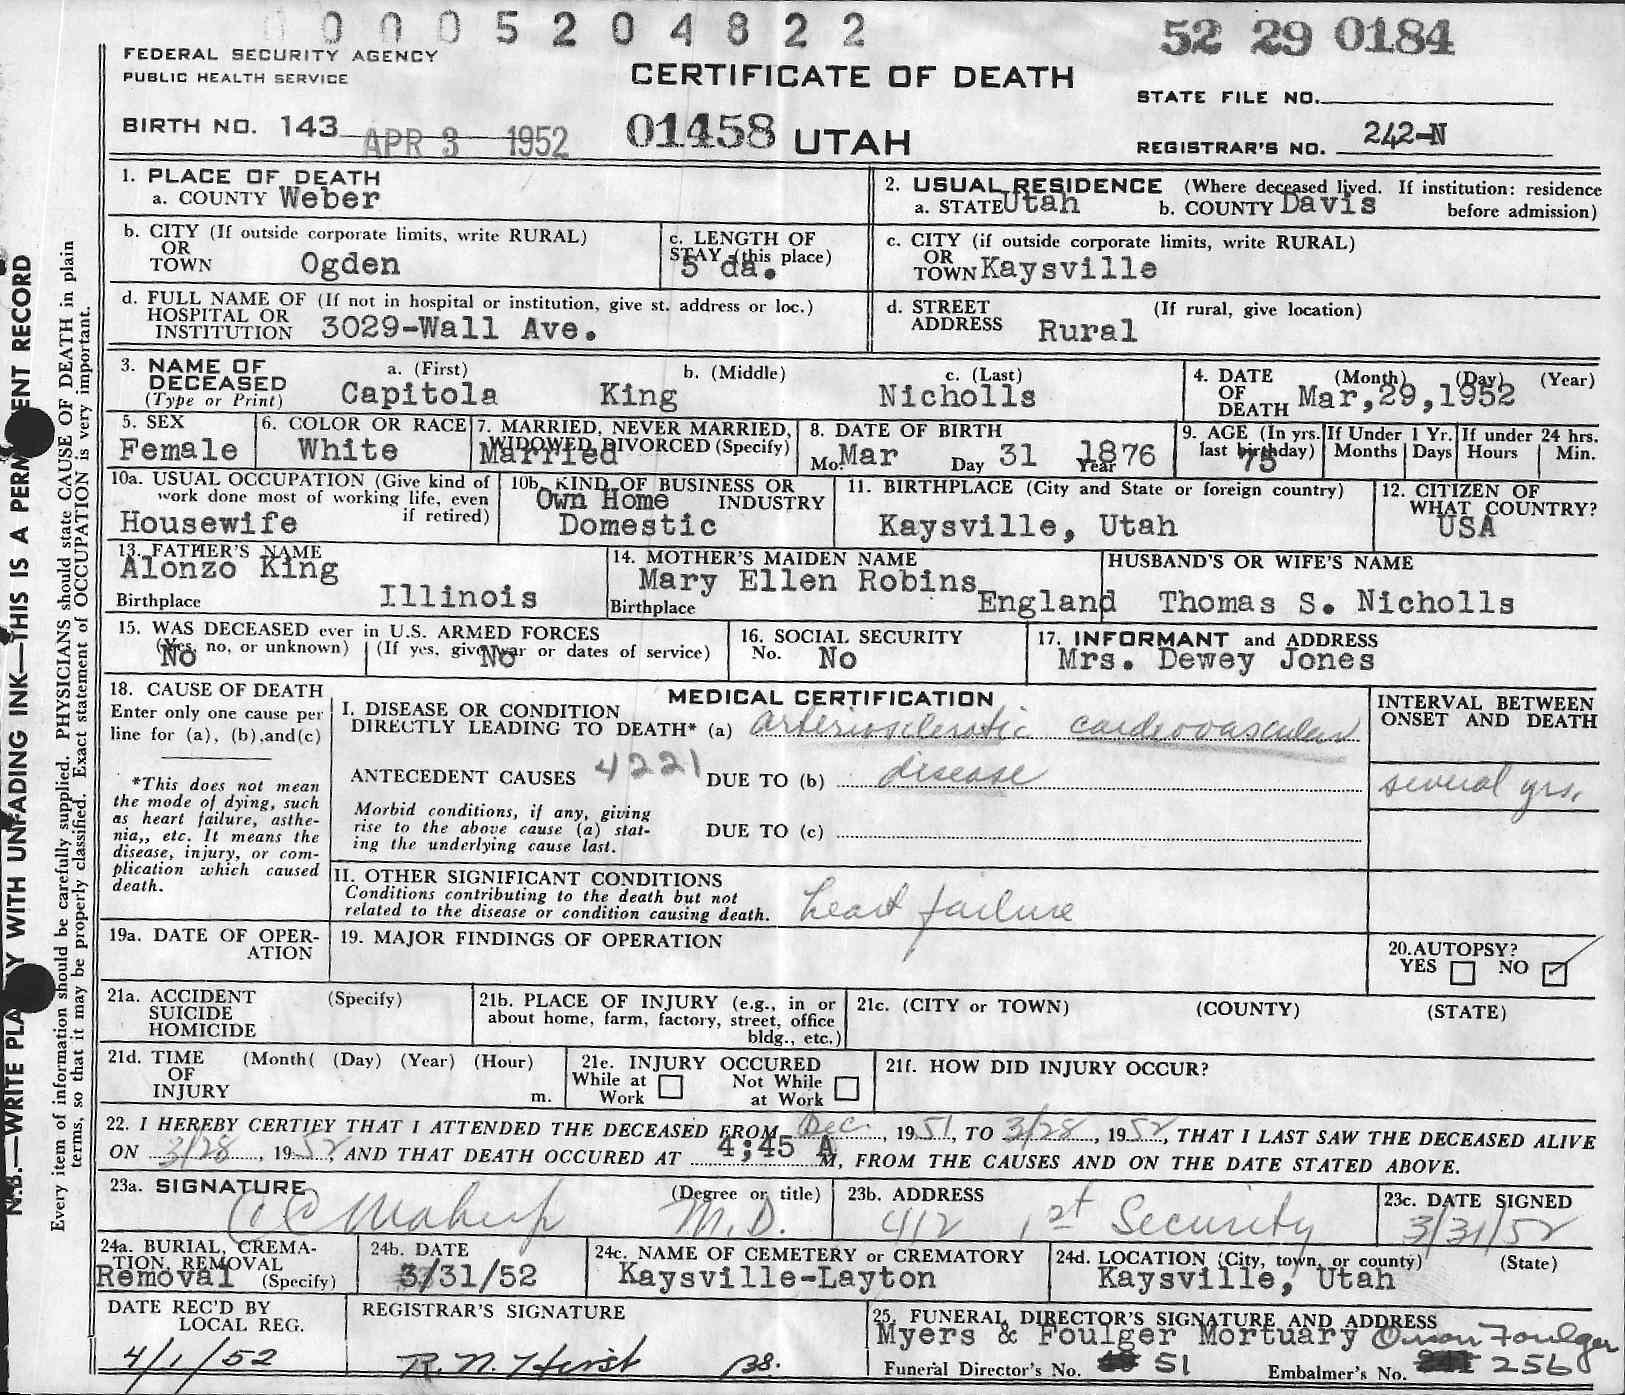 0 0 0 5 2 0 4 8 2 2
52 29 0184
FEDERAL SECURITY AGENCY
PUBLIC HEALTH SERVICE
CERTIFICATE OF DEATH
STATE FILE NO.
BIRTH NO. 143 APR 3 1952 01458 UTAH
REGISTRAR'S NO. 242-N
N.B.—WRITE PLA Y WITH UNFADING INK—THIS IS A PERM ENT RECORD
Every item of information should be carefully supplied. PHYSICIANS should state CAUSE OF DEATH in plain
terms, so that it may be properly classified. Exact statement of OCCUPATION is very important.
1. PLACE OF DEATH
a. COUNTY Weber
2. USUAL RESIDENCE (Where deceased lived. If institution: residence
a. STATE Utah b. COUNTY Davis before admission)
b. CITY (If outside corporate limits, write RURAL)
OR
TOWN Ogden
c. LENGTH OF
STAY (this place)
5 da.
c. CITY (if outside corporate limits, write RURAL)
OR
TOWN Kaysville
d. FULL NAME OF (If not in hospital or institution, give st. address or loc.)
HOSPITAL OR
INSTITUTION 3029-Wall Ave.
d. STREET (If rural, give location)
ADDRESS Rural
3. NAME OF a. (First) b. (Middle) c. (Last)
DECEASED
(Type or Print) Capitola King Nicholls
4. DATE (Month) (Day) (Year)
OF
DEATH Mar,29,1952
5. SEX
Female
6. COLOR OR RACE
White
7. MARRIED, NEVER MARRIED,
WIDOWED, DIVORCED (Specify)
Married
8. DATE OF BIRTH
Mo. Mar Day 31 Year 1876
9. AGE (In yrs.
last birthday)
75
If Under 1 Yr.
Months Days
If under 24 hrs.
Hours Min.
10a. USUAL OCCUPATION (Give kind of
work done most of working life, even
if retired)
Housewife
10b. KIND OF BUSINESS OR
Own Home INDUSTRY
Domestic
11. BIRTHPLACE (City and State or foreign country)
Kaysville, Utah
12. CITIZEN OF
WHAT COUNTRY?
USA
13. FATHER'S NAME
Alonzo King
Birthplace Illinois
14. MOTHER'S MAIDEN NAME
Mary Ellen Robins
Birthplace England
HUSBAND'S OR WIFE'S NAME
Thomas S. Nicholls
15. WAS DECEASED ever in U.S. ARMED FORCES
(Yes, no, or unknown) (If yes, give war or dates of service)
No No
16. SOCIAL SECURITY
No. No
17. INFORMANT and ADDRESS
Mrs. Dewey Jones
18. CAUSE OF DEATH
Enter only one cause per
line for (a), (b),and(c)
*This does not mean
the mode of dying, such
as heart failure, asthe-
nia,, etc. It means the
disease, injury, or com-
plication which caused
death.
MEDICAL CERTIFICATION
I. DISEASE OR CONDITION
DIRECTLY LEADING TO DEATH* (a) arteriosclerotic cardiovascular
ANTECEDENT CAUSES 4221 DUE TO (b) disease
Morbid conditions, if any, giving
rise to the above cause (a) stat-
ing the underlying cause last.
DUE TO (c)
INTERVAL BETWEEN
ONSET AND DEATH
several yrs.
II. OTHER SIGNIFICANT CONDITIONS
Conditions contributing to the death but not
related to the disease or condition causing death. heart failure
19a. DATE OF OPER-
ATION
19. MAJOR FINDINGS OF OPERATION
20.AUTOPSY?
YES NO
21a. ACCIDENT (Specify)
SUICIDE
HOMICIDE
21b. PLACE OF INJURY (e.g., in or
about home, farm, factory, street, office
bldg., etc.)
21c. (CITY or TOWN) (COUNTY) (STATE)
21d. TIME (Month( (Day) (Year) (Hour)
OF
INJURY m.
21e. INJURY OCCURED
While at Not While
Work at Work
21f. HOW DID INJURY OCCUR?
22. I HEREBY CERTIFY THAT I ATTENDED THE DECEASED FROM Dec., 1951, TO 3/28, 1952, THAT I LAST SAW THE DECEASED ALIVE
ON 3/28, 1952, AND THAT DEATH OCCURED AT 4;45 A M, FROM THE CAUSES AND ON THE DATE STATED ABOVE.
23a. SIGNATURE (Degree or title)
M.D.
23b. ADDRESS
412 1st Security
23c. DATE SIGNED
3/31/52
24a. BURIAL, CREMA-
TION, REMOVAL
Removal (Specify)
24b. DATE
3/31/52
24c. NAME OF CEMETERY or CREMATORY
Kaysville-Layton
24d. LOCATION (City, town, or county) (State)
Kaysville, Utah
DATE REC'D BY
LOCAL REG.
4/1/52
REGISTRAR'S SIGNATURE
R. N. Hirst
25. FUNERAL DIRECTOR'S SIGNATURE AND ADDRESS
Myers & Foulger Mortuary Foulger
Funeral Director's No. 51 Embalmer's No. 256